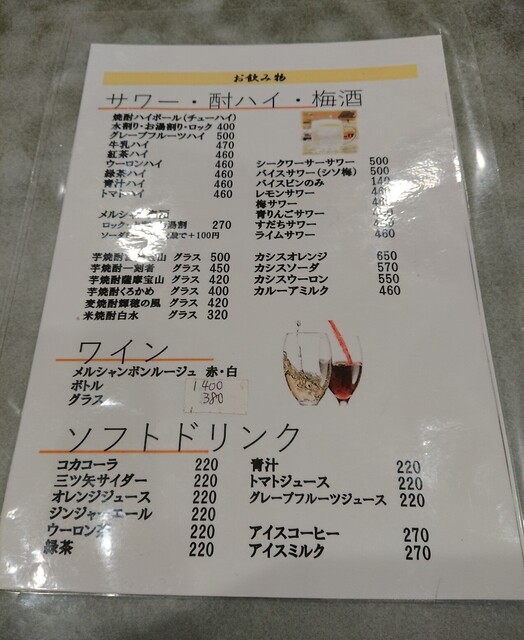 お飲み物
サワー・酎ハイ・梅酒
焼酎ハイボール(チューハイ)
水割り・お湯割り・ロック 400
グレープフルーツハイ 500
牛乳ハイ 470
紅茶ハイ 460
ウーロンハイ 460
緑茶ハイ 460
青汁ハイ 460
トマトハイ 460
メルシャン
ロック・ 割 270
ソーダ 設で+100円
シークワーサーサワー 500
バイスサワー(シソ梅) 500
バイスビンのみ
レモンサワー
梅サワー
青りんごサワー
すだちサワー
ライムサワー 460
芋焼酎 宝山 グラス 500
芋焼酎一刻者 グラス 450
芋焼酎薩摩宝山 グラス 420
芋焼酎くろかめ グラス 400
麦焼酎輝穂の風 グラス 420
米焼酎白水 グラス 320
カシスオレンジ 650
カシスソーダ 570
カシスウーロン 550
カルーアミルク 460
ワイン
メルシャンボンルージュ 赤・白
ボトル 1.400
グラス 380
ソフトドリンク
コカコーラ 220
三ツ矢サイダー 220
オレンジジュース 220
ジンジャーエール 220
ウーロン茶 220
緑茶 220
青汁 220
トマトジュース 220
グレープフルーツジュース 220
アイスコーヒー 270
アイスミルク 270